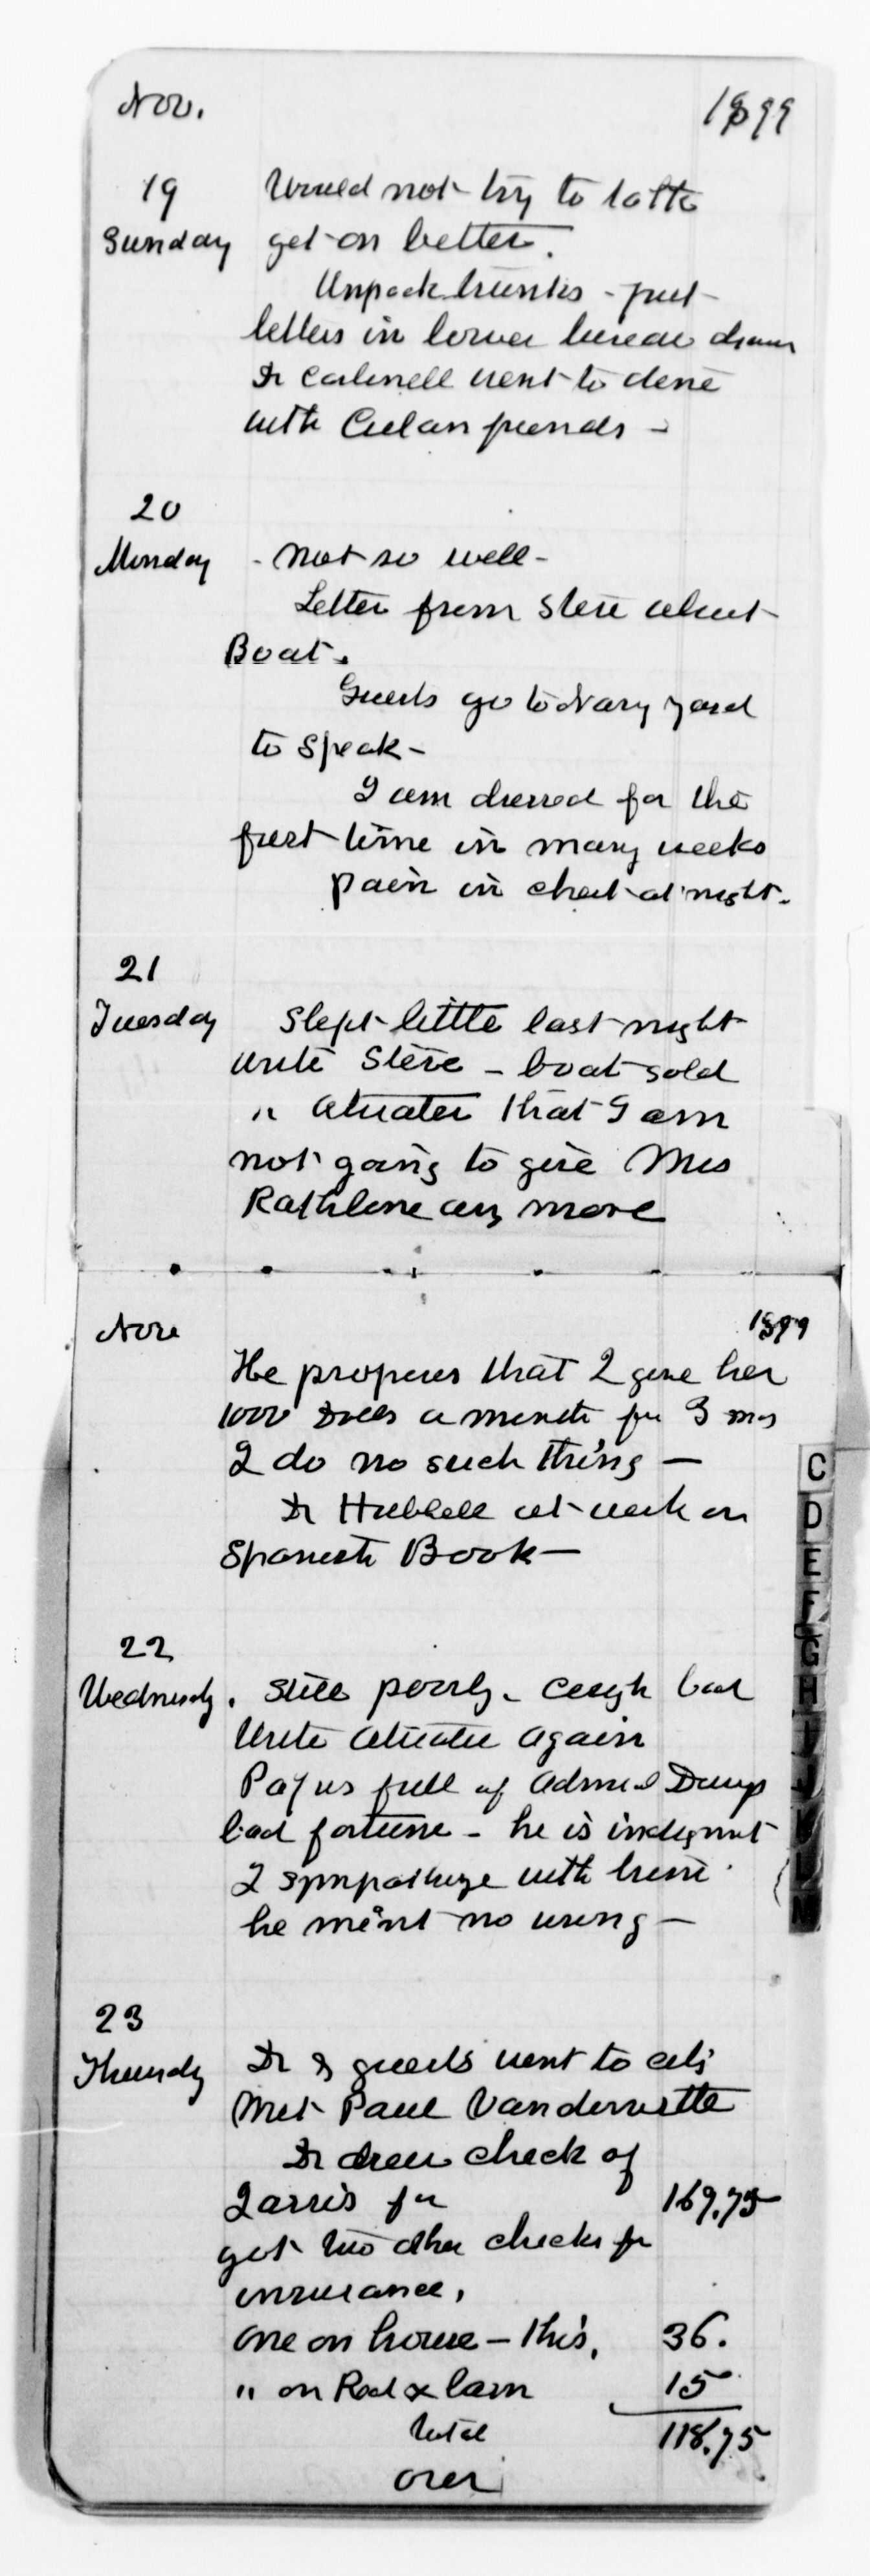 Nov. 1899
19 Would not try to talk
Sunday get on better.
Unpack trunks - put
letters in lower bureau drawer
Dr Cardwell went to dine
with Cuban friends -
20
Monday - not so well -
Letter from Steve about
Boat.
Guests go to Navy yard
to speak -
I am dressed for the
first time in many weeks
pain in chest at night.
21
Tuesday Slept little last night
write Steve - boat sold
" Atwater that I am
not going to give Mrs
Rathbone any more
Nov 1899
He proposes that I give her
1000 Dolls a month for 3 mos
I do no such thing -
Dr Hubbell at work on
Spanish Book -
22
Wednesdy. Still poorly - cough bad
Write Atwater again
Papers full of Admiral Deweys
bad fortune - he is indignant
I sympathize with him
he ment no wrong -
23
Thursdy Dr & guests went to city
Met Paul Vandervette
Dr drew check of
for 169.75
got two other checks for
insurance,
one on house - this, 36.
" on & barn 15
total 118.75
over